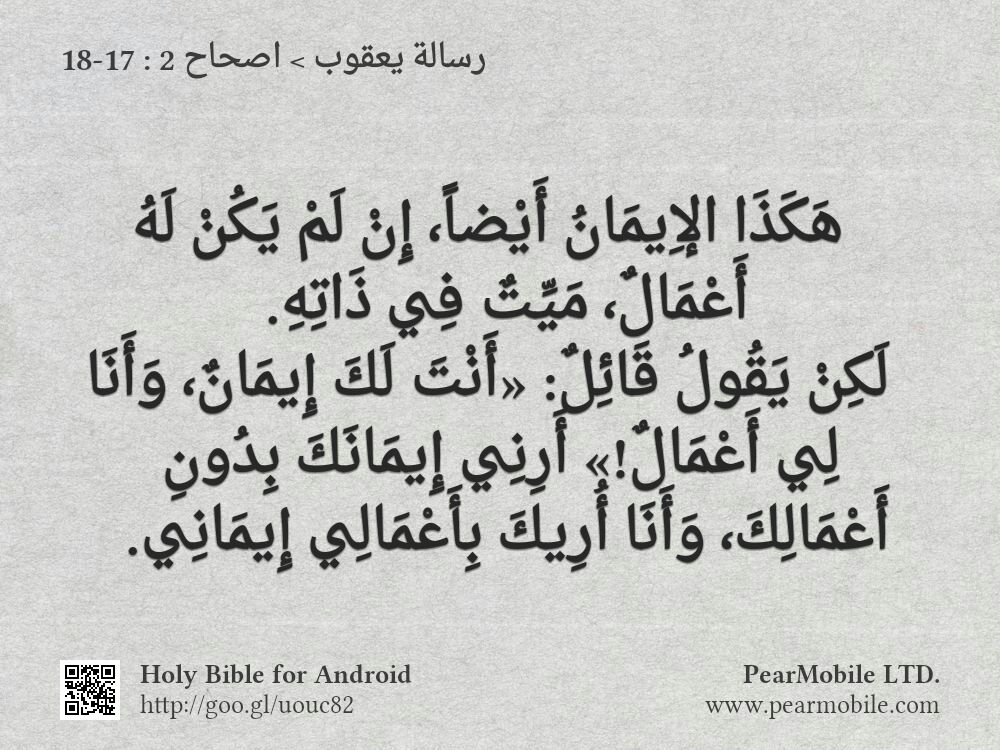 رسالة يعقوب > اصحاح 2 : 17-18
هَكَذَا الإِيمَانُ أَيْضاً، إِنْ لَمْ يَكُنْ لَهُ
أَعْمَالٌ، مَيِّتٌ فِي ذَاتِهِ.
لَكِنْ يَقُولُ قَائِلٌ: «أَنْتَ لَكَ إِيمَانٌ، وَأَنَا
لِي أَعْمَالٌ!» أَرِنِي إِيمَانَكَ بِدُونِ
أَعْمَالِكَ، وَأَنَا أُرِيكَ بِأَعْمَالِي إِيمَانِي.
Holy Bible for Android
http://goo.gl/uouc82
PearMobile LTD.
www.pearmobile.com